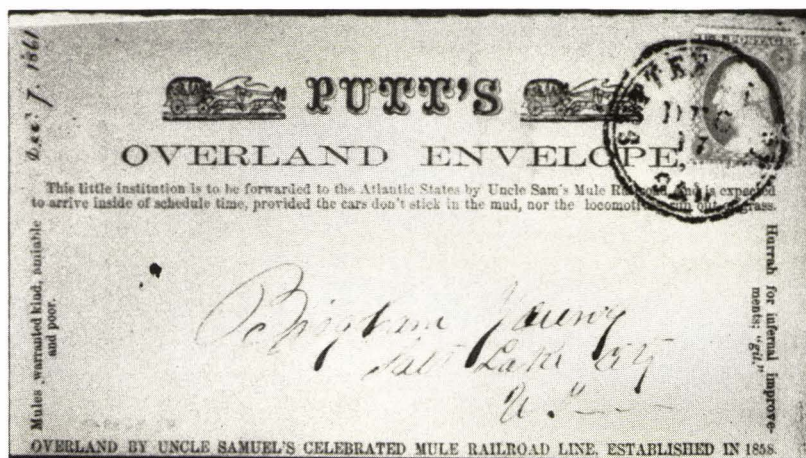 Dec 7. 1861
PUTT'S
OVERLAND ENVELOPE,
This little institution is to be forwarded to the Atlantic States by Uncle Sam's Mule Railroad and is expected
to arrive inside of schedule time, provided the cars don't stick in the mud, nor the locomotives run out of grass.
Mules warranted kind, amiable
and poor.
Brigham Young
Salt Lake City
U.T.
Hurrah for infernal improve-
ments; "git."
OVERLAND BY UNCLE SAMUEL'S CELEBRATED MULE RAILROAD LINE, ESTABLISHED IN 1858.
DEC
17
CAL